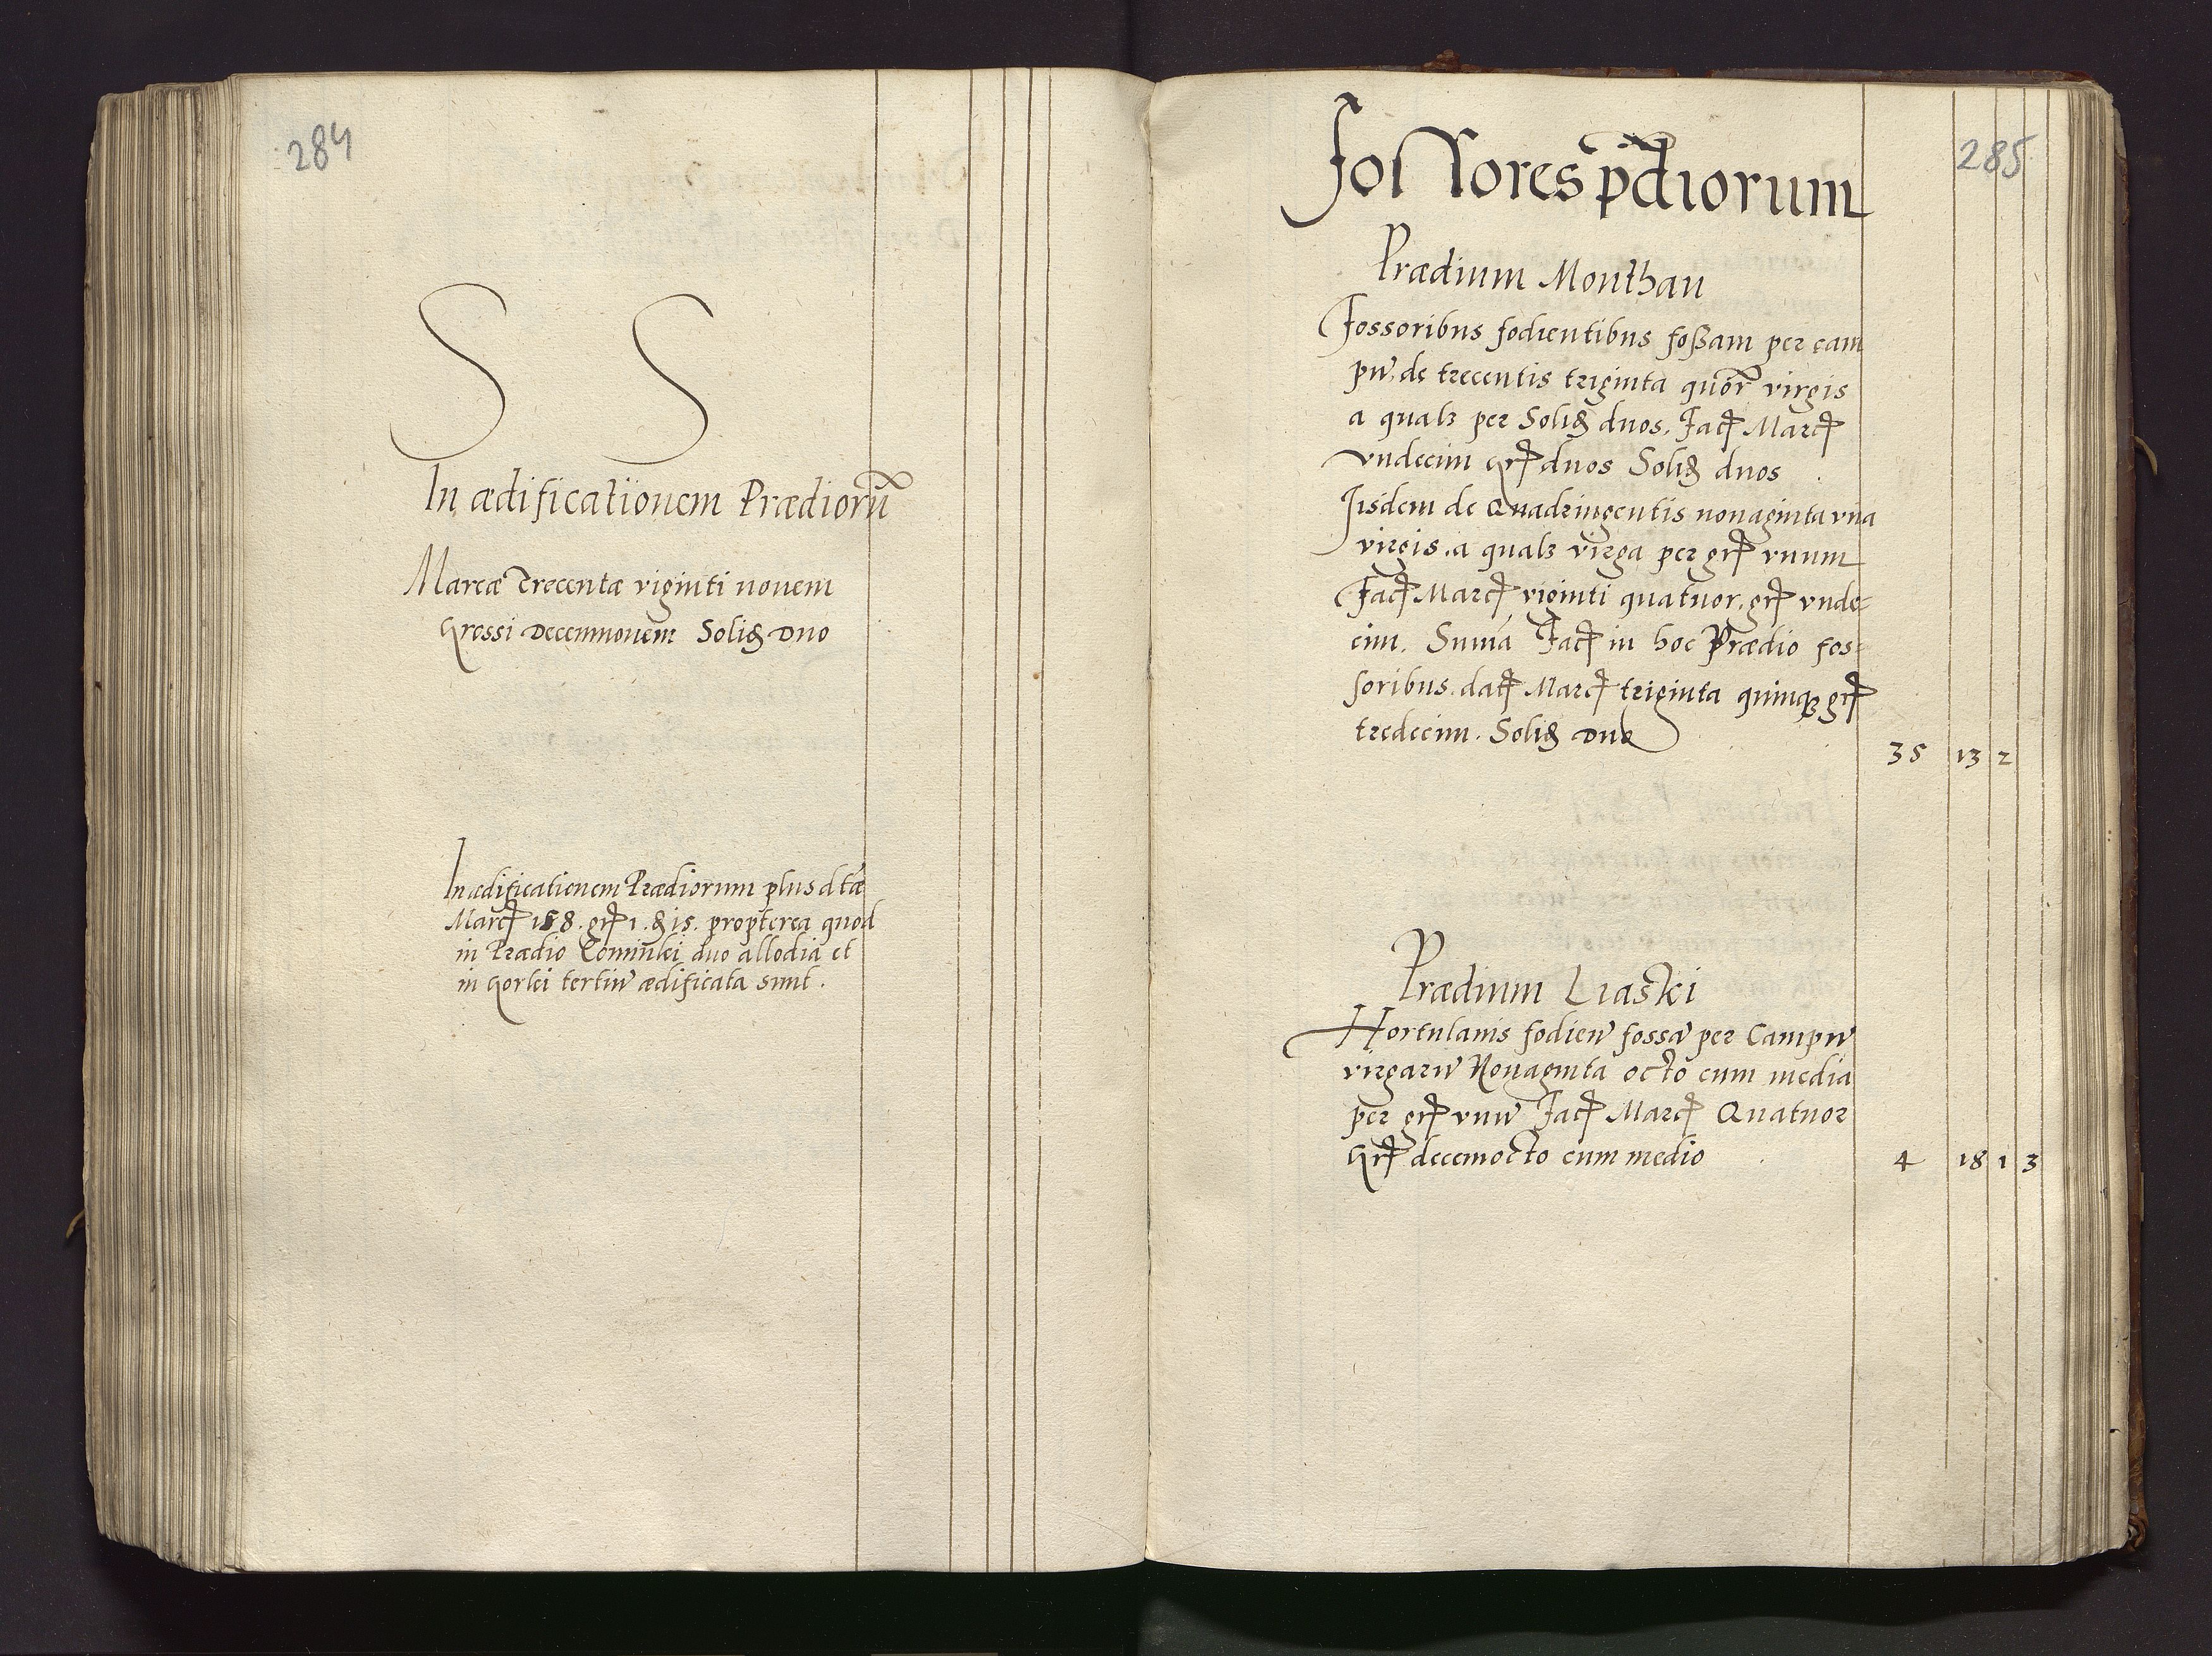 284
S S
In ædificationem Prædiorũ
Marcæ Trecentæ viginti novem
Grossi Decemnovem Solid Duo
In ædificationem Prædiorum plus
Marc 158. gr 1. ß 15. propterea quod
in Prædio duo allodia et
in Gorki tertiũ ædificata sunt.
285
Fossores pdiorum
Prædium Monthau
Fossoribus fodientibus foßam per cam
pũ, de trecentis triginta quor virgis
a qualz per Solid duos. Fac Marc
vndecim Gr duos Solid duos
Iisdem de Quadringentis nonaginta vna
virgis. a qualz virga per gr vnum
Fac Marc viginti quatuor. gr vnde=
cim. Suma Fac in hoc Prædio fos=
soribus. dat Marc triginta quinqz gr
tredecim. Solid Duo
35 13 2
Prædium Liaski
Hortulanis fodien fossã per Campũ
virgarũ Nonaginta octo cum media
per gr vnũ Fac Marc Quatuor
Gr decemocto cum medio
4 18 1 3